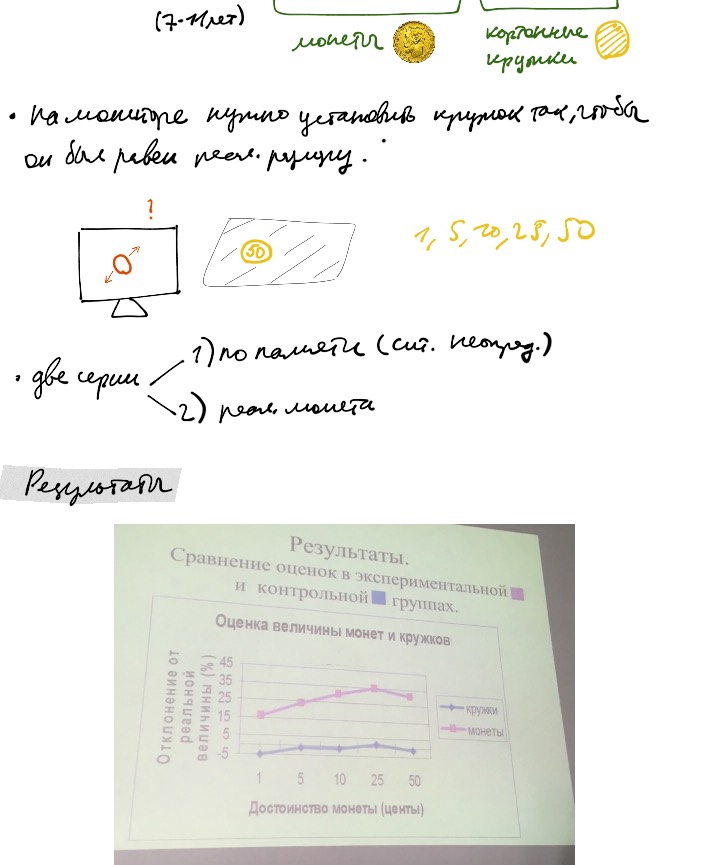 (7-11 лет)
монеты
картонные
кружки
• на мониторе нужно установить кружок так, чтобы
он был равен реал. размеру.
?
50
1, 5, 10, 25, 50
• две серии
1) по памяти (сит. неопред.)
2) реал. монета
Результаты
Результаты.
Сравнение оценок в экспериментальной
и контрольной группах.
Оценка величины монет и кружков
Отклонение от
реальной
величины (%)
45
35
25
15
5
-5
1 5 10 25 50
Достоинство монеты (центы)
кружки
монеты